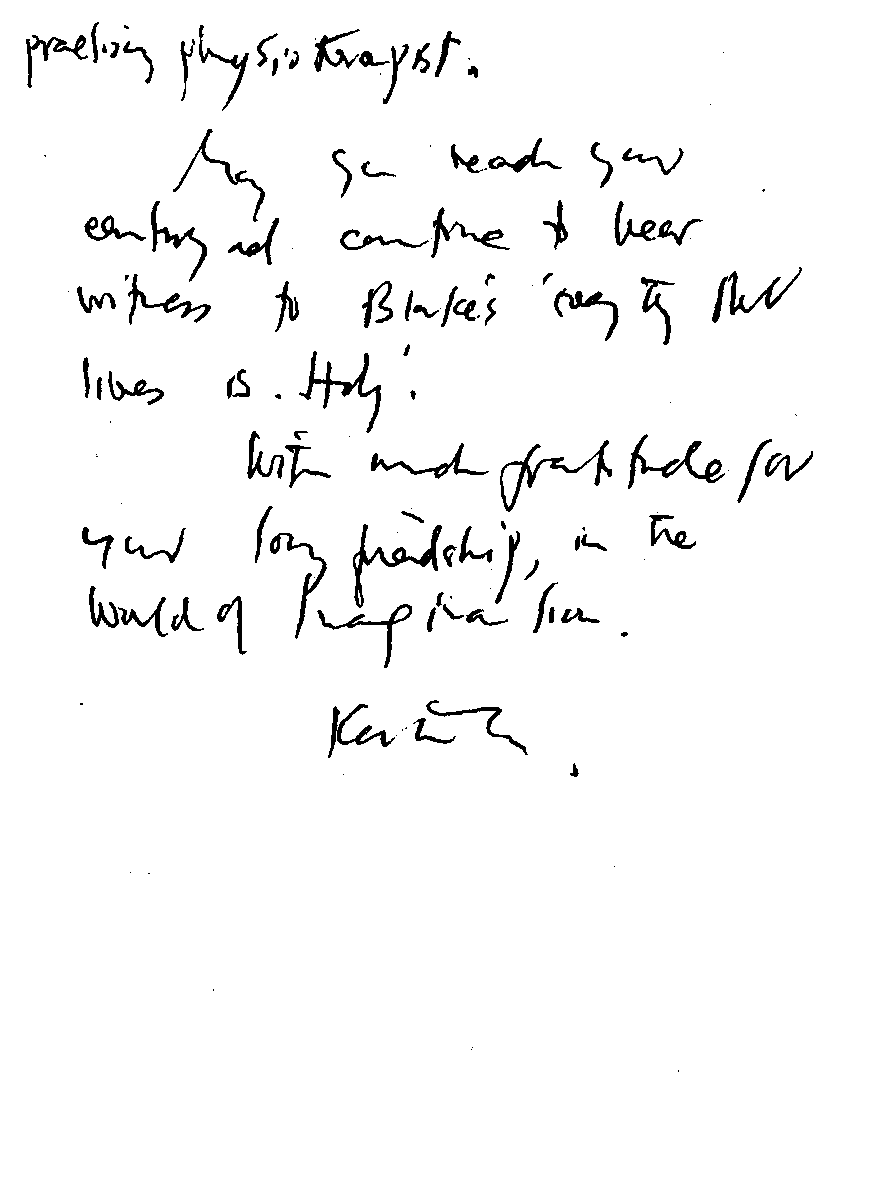 practising physiotherapist.
May you reach your
century and continue to bear
witness to Blake's 'every thing that
lives is Holy'.
With much gratitude for
your long friendship, in the
World of Imagination.